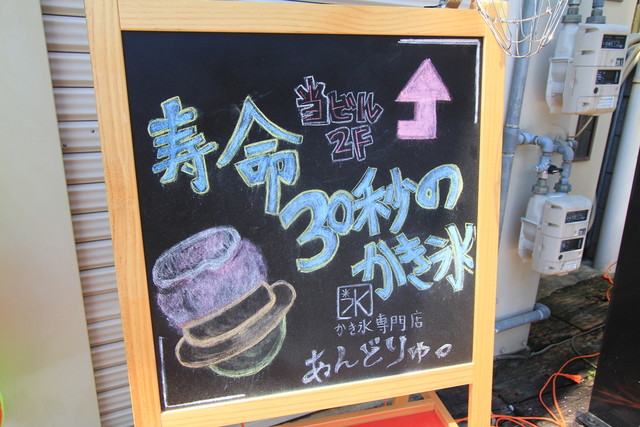 当ビル
2F
寿命
30秒の
かき氷
氷
かき氷専門店
あんどりゅ。